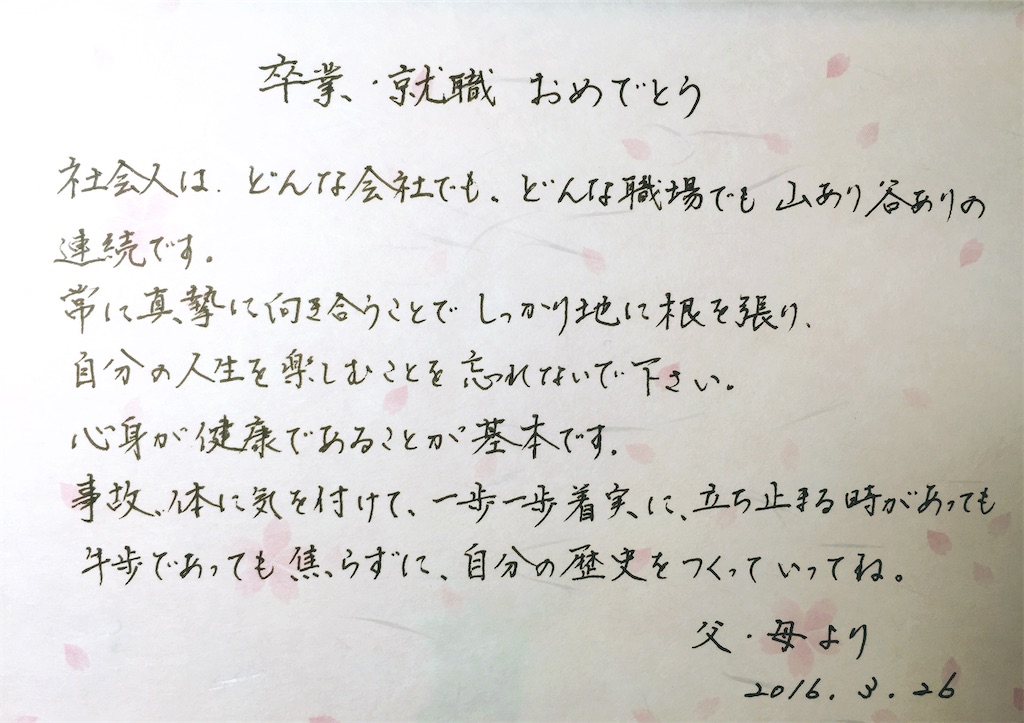 卒業・就職 おめでとう
社会人は、どんな会社でも、どんな職場でも 山あり谷ありの
連続です。
常に真摯に向き合うことで しっかり地に根を張り、
自分の人生を楽しむことを忘れないで下さい。
心身が健康であることが基本です。
事故、体に気を付けて、一歩一歩着実に、立ち止まる時があっても
牛歩であっても焦らずに、自分の歴史をつくっていってね。
父・母より
2016.3.26